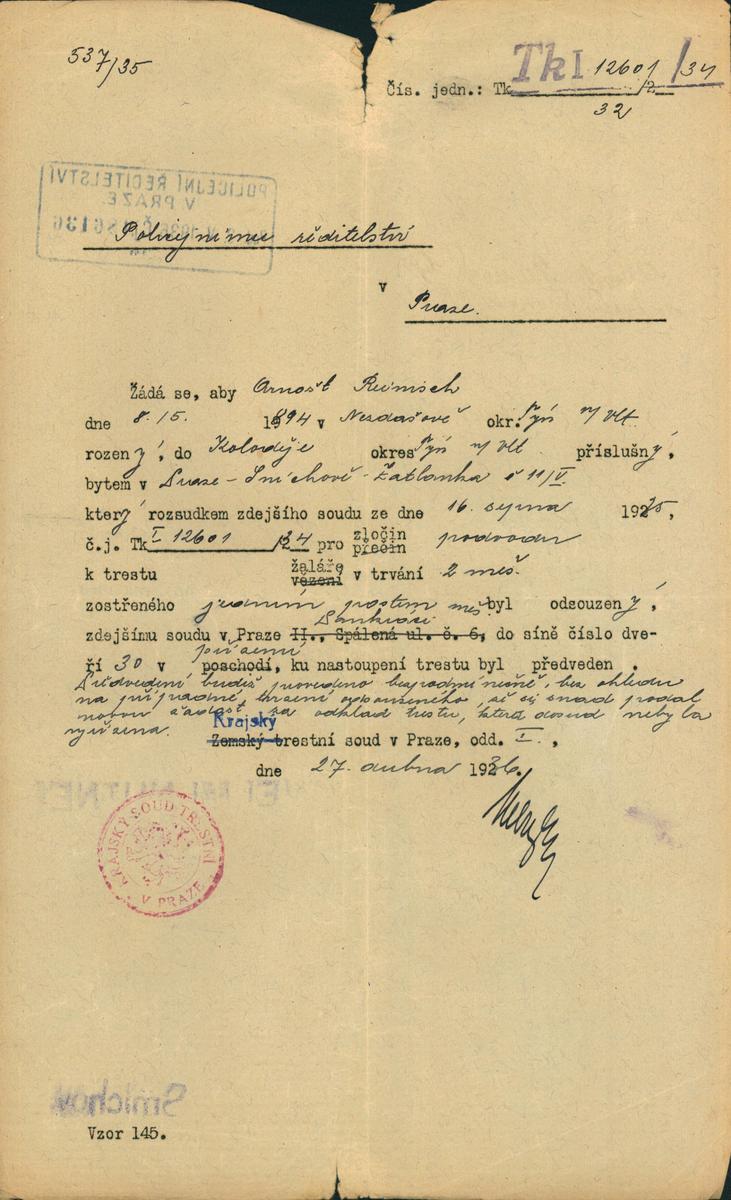 537/35
TkI 12601 /34
Čís. jedn.: Tk /2
32
POLICEJNÍ ŘEDITELSTVÍ
V PRAZE
Policejnímu ředitelství
v
Praze.
Žádá se, aby Arnošt Reimisch
dne 8./5. 1894 v Nezdašově okr. Týn n/Vlt
rozený, do Koloděje okres Týn n/Vlt příslušný,
bytem v Praze-Smíchově-Žatlanka č 11/V.
který rozsudkem zdejšího soudu ze dne 16. srpna 1935,
č.j. Tk I 12601 /34 pro zločin podvodu
přečin
k trestu žaláře v trvání 2 měs.
vězení
zostřeného jedním postem měs byl odsouzený,
zdejšímu soudu v Praze II., Spálená ul. č. 6, do síně číslo dve-
přízemí
ří 30 v poschodí, ku nastoupení trestu byl předveden.
Předvedení budiž provedeno bezpodmínečně, bez ohledu
na případné odsouzeného, ač si snad podal
novou žádost za odklad trestu, která dosud nebyla
vyřízena.
Krajský
Zemský trestní soud v Praze, odd. I.,
dne 27. dubna 1936.
KRAJSKÝ SOUD TRESTNÍ V PRAZE
Smíchov
Vzor 145.